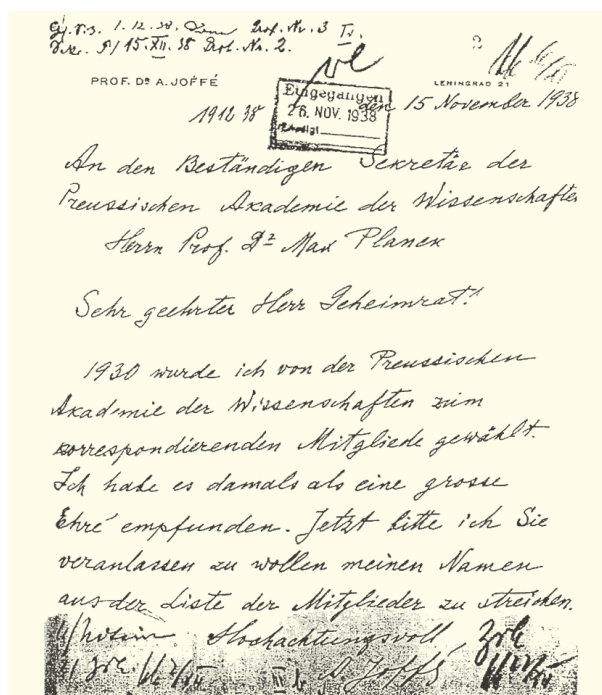 1. 12. 38.
15. XII. 38 Prot. No. 2.
PROF. DR A. JOFFÉ
LENINGRAD 21
Eingegangen
26. NOV. 1938
den 15 November 1938
1912 38
An den Beständigen Sekretär der
Preussischen Akademie der Wissenschaften
Herrn Prof. Dr Max Planck
Sehr geehrter Herr Geheimrat!
1930 wurde ich von der Preussischen
Akademie der Wissenschaften zum
korrespondierenden Mitgliede gewählt.
Ich habe es damals als eine grosse
Ehre empfunden. Jetzt bitte ich Sie
veranlassen zu wollen meinen Namen
aus der Liste der Mitglieder zu streichen.
Hochachtungsvoll
A. Joffé